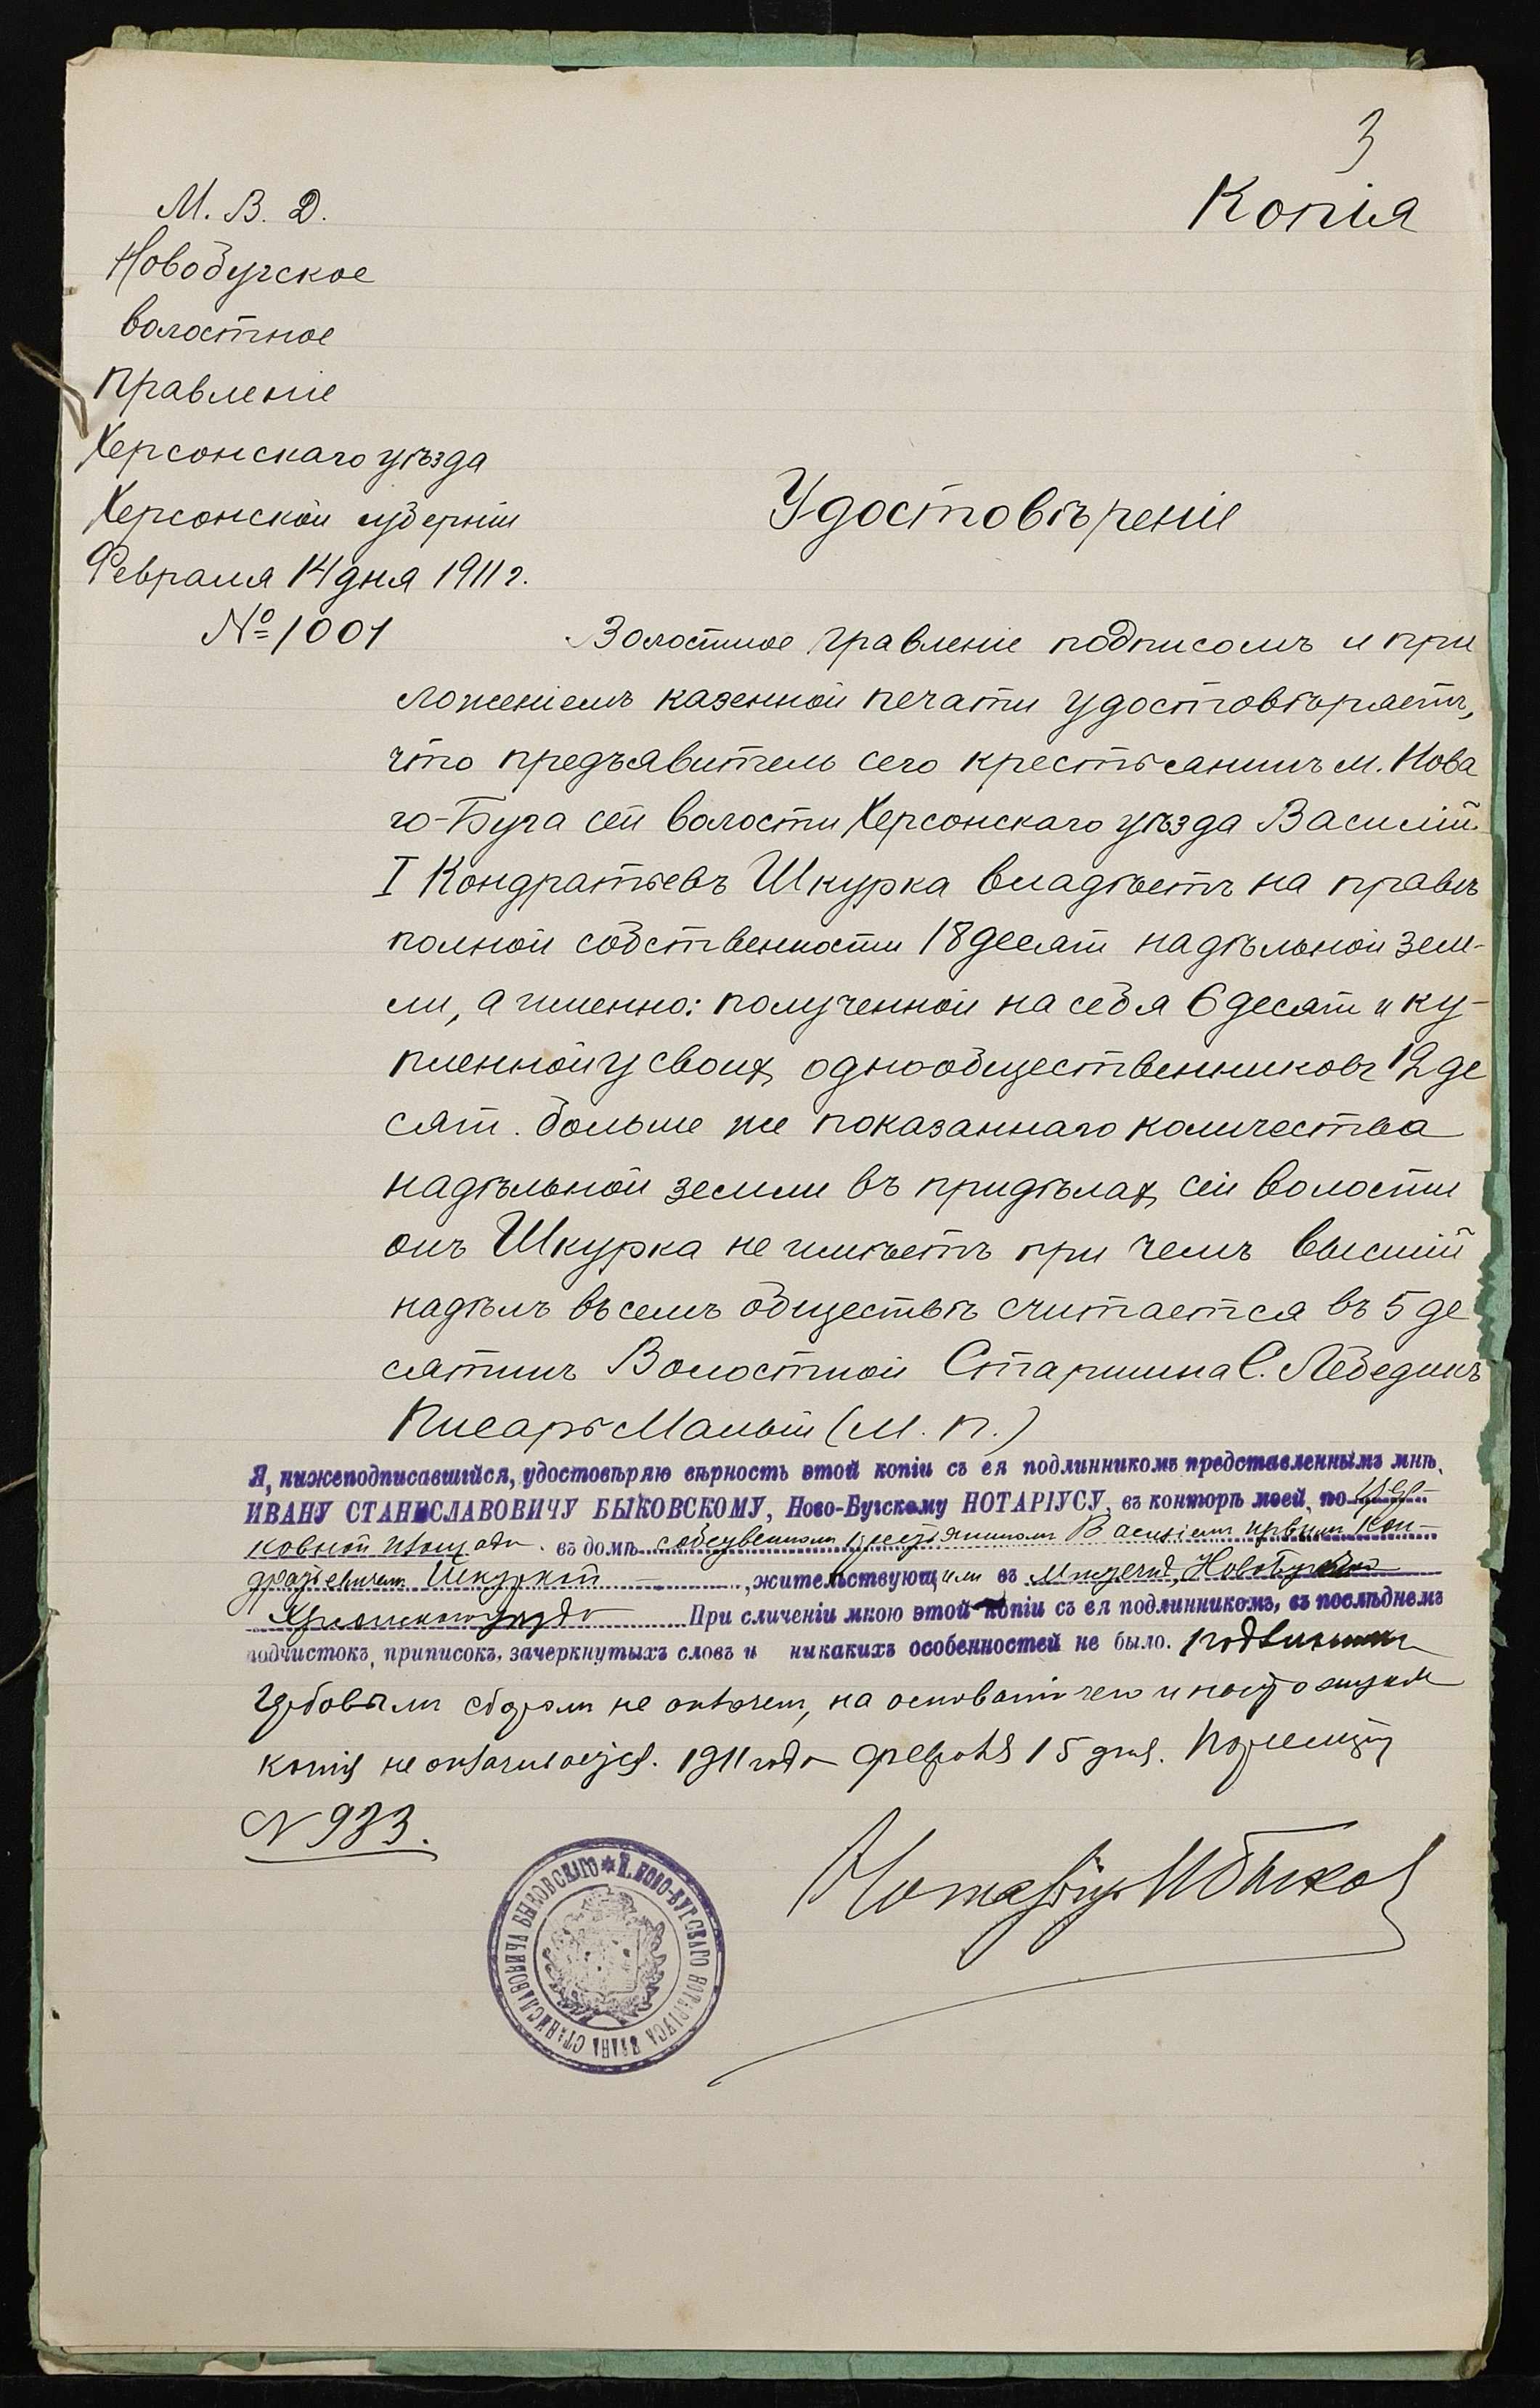 3
Копія
М. В. Д.
Новобугское
волостное
правленіе
Херсонскаго уѣзда
Херсонской губерніи
Февраля 14 дня 1911 г.
№ 1001
Удостовѣреніе
Волостное правленіе подписомъ и при
ложеніемъ казенной печати удостовѣряетъ,
что предъявитель сего крестьянинъ м. Нова
го-Буга сей волости Херсонскаго уѣзда Василій
I Кондратьевъ Шкурка владѣетъ на правѣ
полной собственности 18 десят надѣльной зем-
ли, а именно: полученной на себя 6 десят и ку-
пленной у своих однообщественниковъ 12 де
сят. больше же показаннаго количества
надѣльной земли въ придѣлах сей волости
онъ Шкурка не имѣетъ при чемъ высшій
надѣлъ въ семъ обществѣ считается въ 5 де
сятинъ Волостной Старшина С. Лебединъ
Писарь Малый (М. П.)
Я, нижеподписавшійся, удостовѣряю вѣрность этой копіи съ ея подлинникомъ представленнымъ мнѣ,
ИВАНУ СТАНИСЛАВОВИЧУ БЫКОВСКОМУ, Ново-Бугскому НОТАРІУСУ, въ конторѣ моей, по Цер-
ковной площади въ домѣ собственномъ крестьяниномъ Василіемъ первымъ Кон-
дратьевичемъ Шкуркой, жительствующимъ въ мѣстечкѣ Новобугѣ
Херсонскаго уѣзда При сличеніи мною этой копіи съ ея подлинникомъ, въ послѣднемъ
подчистокъ, приписокъ, зачеркнутыхъ словъ и никакихъ особенностей не было. Подлинникъ
гербовымъ сборомъ не оплаченъ, на основаніи чего и настоящая
копія не оплачивается. 1911 года февраля 15 дня. По реестру
N 933.
Нотаріусъ И Быков
* Н. НОВО-БУГСКАГО НОТАРІУСА ИВАНА СТАНИСЛАВОВИЧА БЫКОВСКАГО